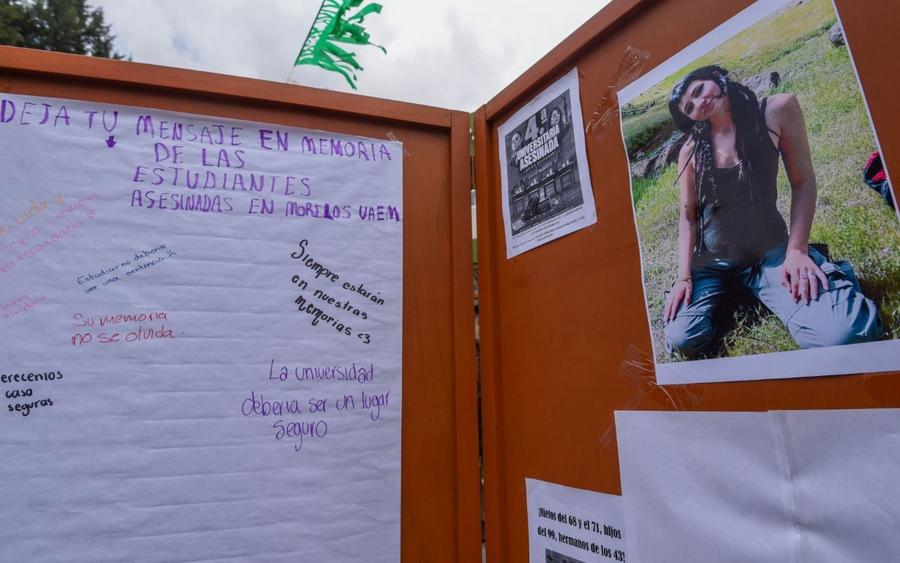 DEJA TU MENSAJE EN MEMORIA
DE LAS
ESTUDIANTES
ASESINADAS EN MORELOS UAEM
Estudiar no debería
ser una sentencia
Su memoria
no se olvida.
erecemos
casa
seguras
Siempre estarán
en nuestras
memorias <3
La universidad
debería ser un lugar
seguro
4.a
UNIVERSITARIA
ASESINADA
¡Nietos del 68 y el 71, hijos
del 99, hermanos de los 43!